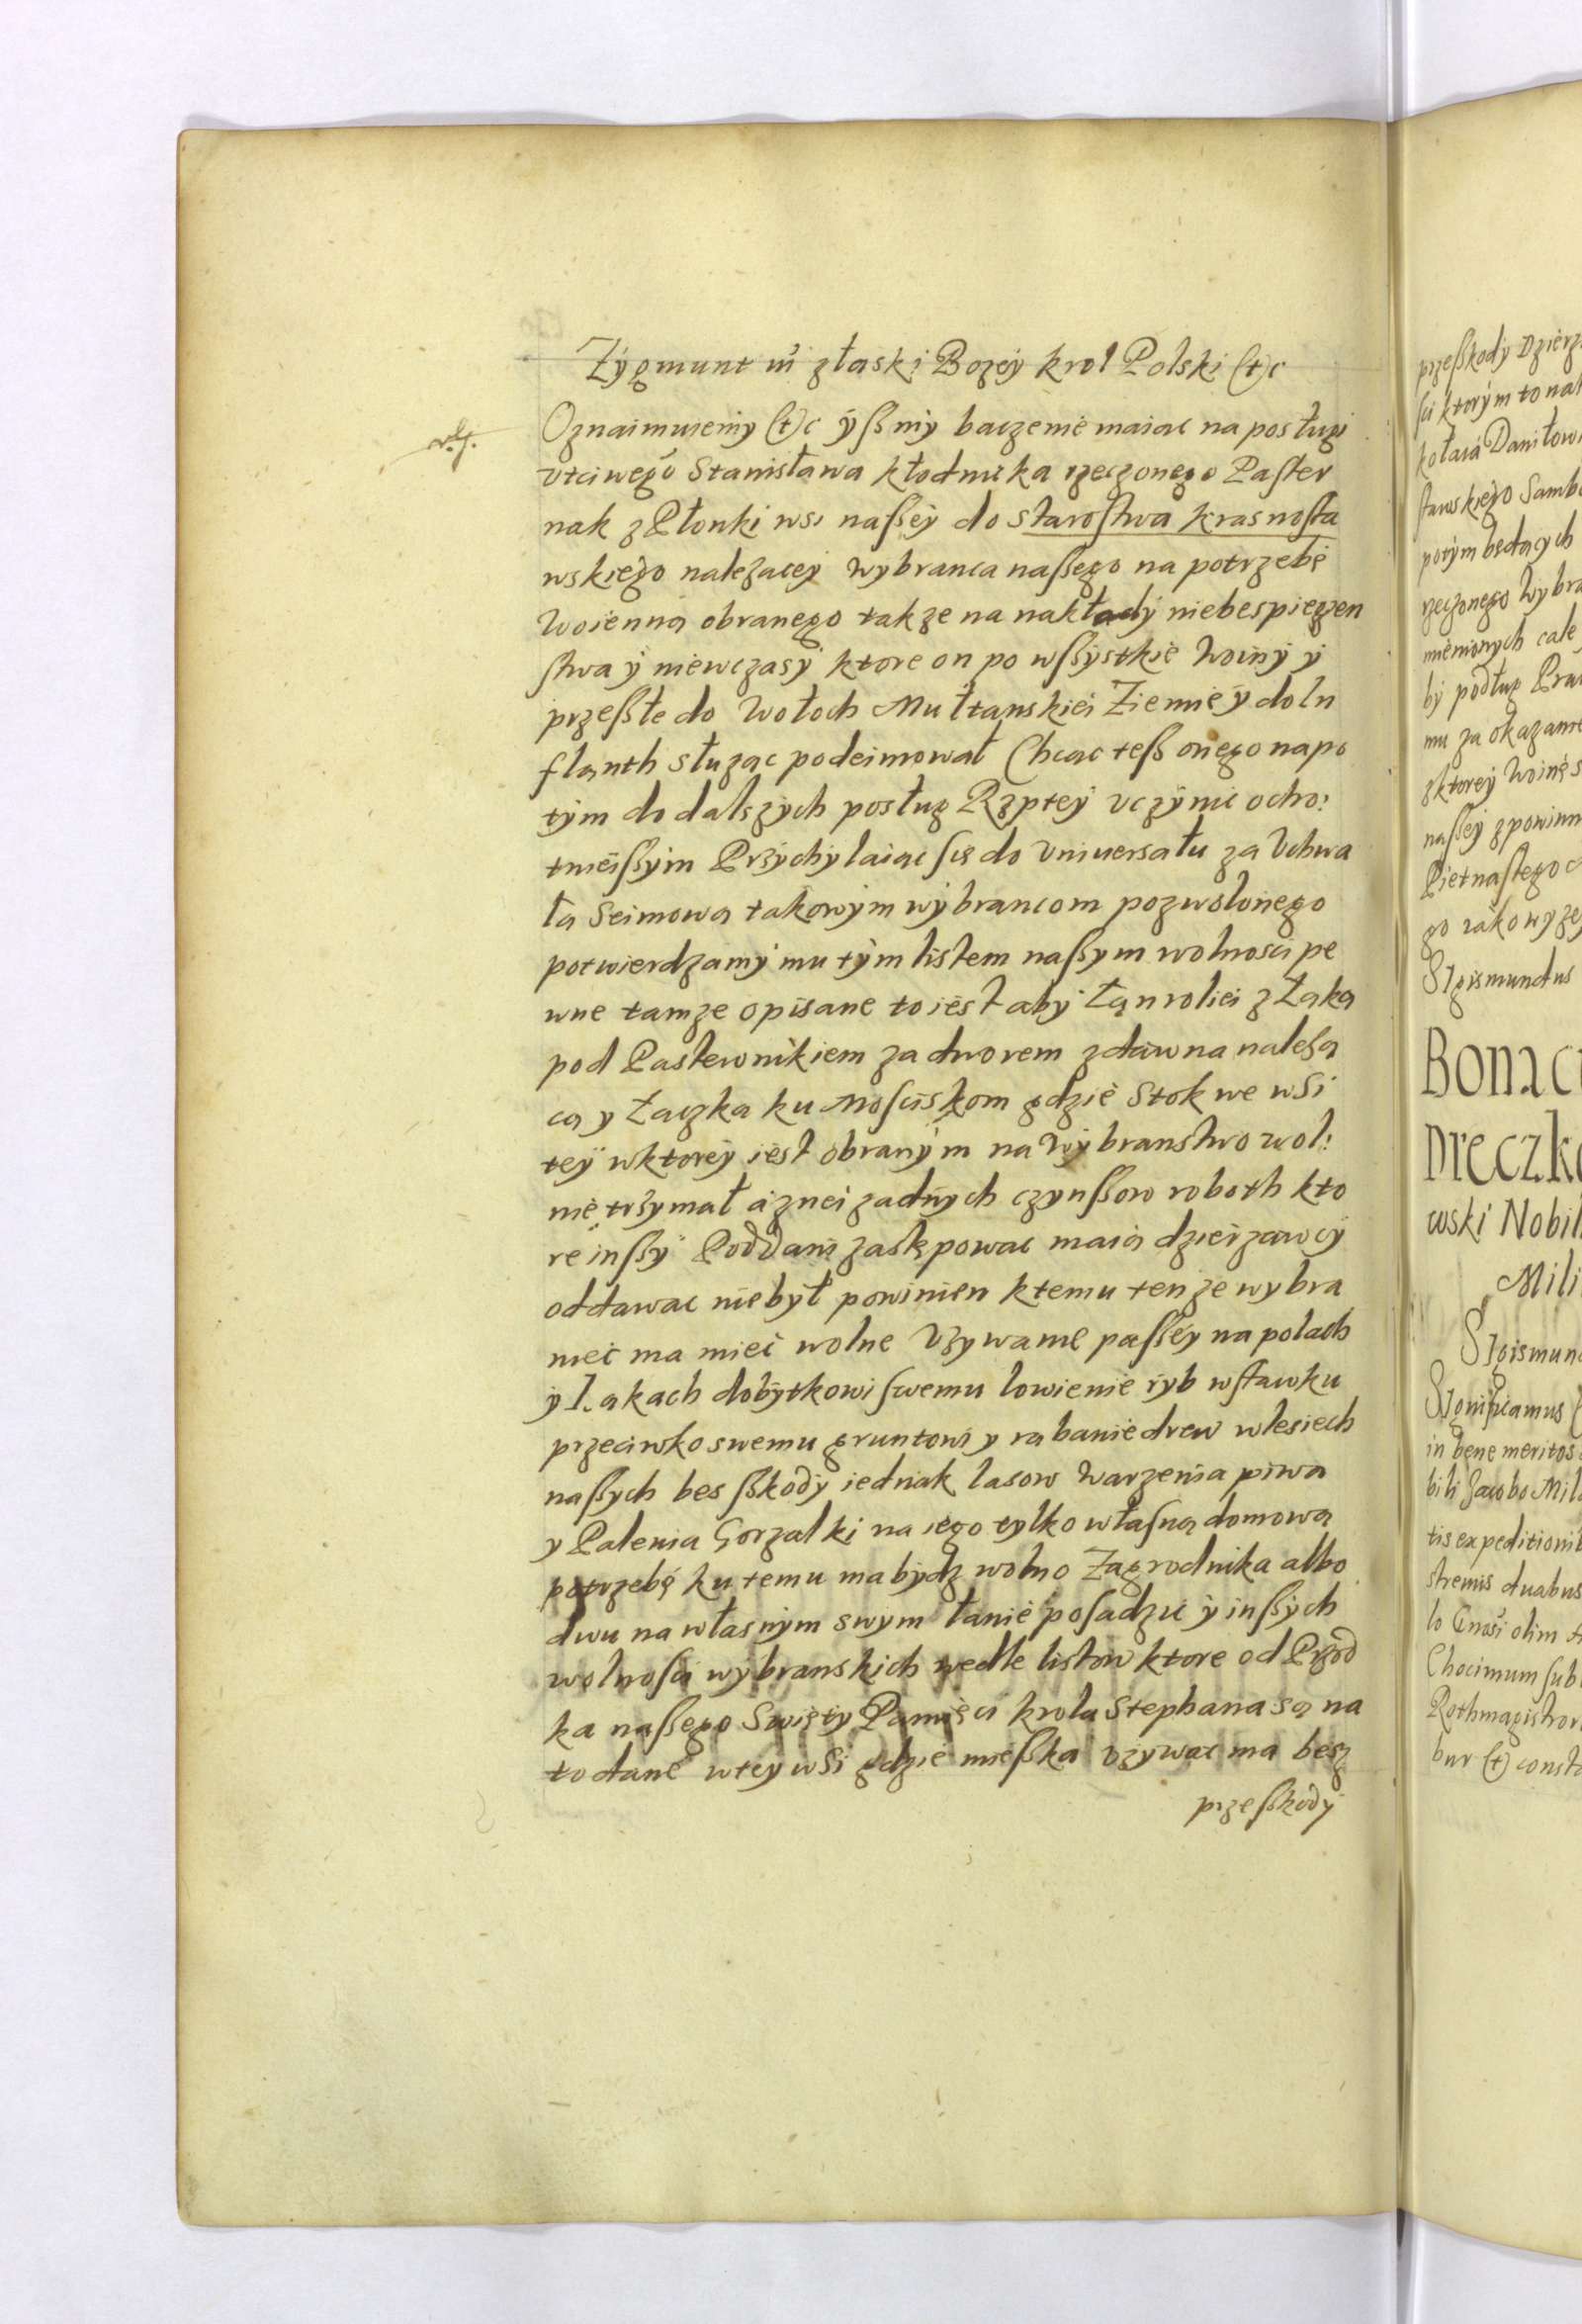 Zygmunt III z łaski Bozey krol Polski (t)c
Oznaimuiemy (t)c yß my baczenie maiąc na posługi
vtciwego Stanisława kłodnika rzeczonego Paster
nak z Płonki wsi naßey do Starostwa krasnosta
wskiego nalezącey wybranca naßego na potrzebę
woienną obranego takze na nakłady niebespieczen
stwa y niewczasy ktore on po wßystkie woiny y
przeßłe do Wołoch Multanskiei Ziemie y do In
flanth słuząc podeimował Chcąc teß onego na po
tym do dalszych posług Rzptey vczynic ocho:
tnieißym Przychylaiąc się do vniuersału za Vchwa
łą Seimową takowym wybrancom pozwolonego
potwierdzamy mu tym listem naßym wolnosci pe
wne tamze opisane to iest aby Łąn roliei z Łąką
pod Pastewnikiem za dworem zdawna nalezą
cą y Łączka ku Mosciskom gdzie Stok we wsi
tey w ktorey iest obranym na wybranstwo wol:
nie trzymał a z niei zadnych czynßow roboth kto
re inßy Poddani zastępowac maią dzierzawcy
oddawac niebył powinien k temu tenze wybra
niec ma miec wolne Vzywanie paßey na polach
y Łąkach dobytkowi swemu lowienie ryb w stawku
przeciwko swemu gruntowi y rąbanie drew w lesiech
naßych bes ßkody iednak lasow warzenia piwa
y Palenia Gorzalki na iego tylko własną domową
potrzebę ku temu ma bydz wolno Zagrodnika albo
dwu na własnym swym łanie posadzic y inßych
wolnosci wybranskich wedle listow ktore od Przod
ka naßego Swięty Pamięci krola Stephana są na
to dane w tey wsi gdzie mießka vzywac ma besz
przeßkody
przeßkody Dzierz
sci ktorym to nal
kołaia Daniłowi
stawskiego Samb
potym będących
rzeczonego Wybra
mienionych cale
by podług Praw
mu za okazanie
z ktorey Woinę s
naßey z powinn
Pietnastego
go rakowy ze
SIgismundus
Bonaci
Dreczk
wski Nobil
Mili
SIgismun
SIgnificamus (
in bene meritos
bili Jacobo Mil
tis expeditionib
stremis duabus
Chocimum sub
Rothmagistror
bur (t) consta